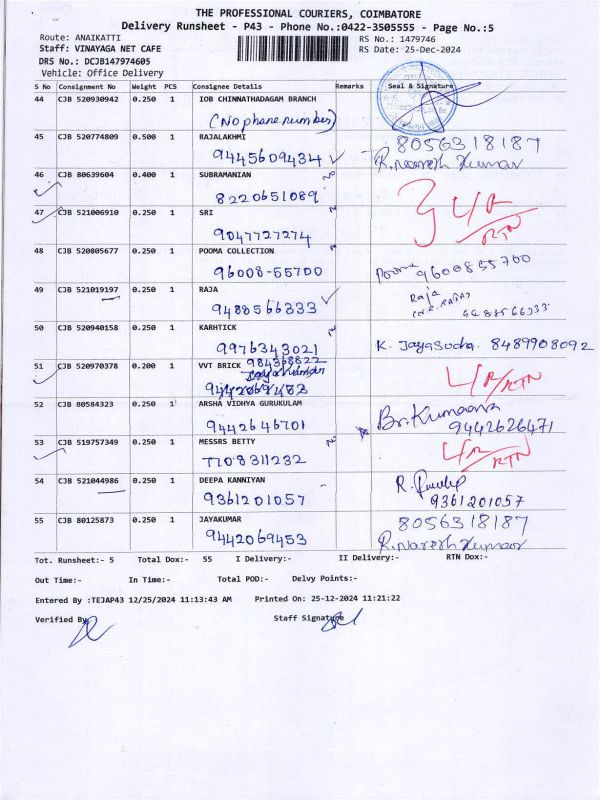 THE PROFESSIONAL COURIERS, COIMBATORE
Delivery Runsheet - P43 - Phone No.:0422-3505555 - Page No.:5
Route: ANAIKATTI
RS No.: 1479746
Staff: VINAYAGA NET CAFE
RS Date: 25-Dec-2024
DRS No.: DCJB147974605
Vehicle: Office Delivery
S No Consignment No Weight PCS Consignee Details Remarks Seal & Signature
44 CJB 520930942 0.250 1 IOB CHINNATHADAGAM BRANCH
(No phone number)
45 CJB 520774809 0.500 1 RAJALAKHMI 8056318187
9445609434 R. Naresh Kumar
46 CJB 80639604 0.400 1 SUBRAMANIAN
8220651089
47 CJB 521006910 0.250 1 SRI RTN
9047727274
48 CJB 520805677 0.250 1 POOMA COLLECTION
96008-55700 9600855700
49 CJB 521019197 0.250 1 RAJA Raja
9488566333
50 CJB 520940158 0.250 1 KARHTICK
9976343021 K. Jayasudha. 8489908092
51 CJB 520970378 0.200 1 VVT BRICK
RTN
52 CJB 80584323 0.250 1 ARSHA VIDHYA GURUKULAM
9442646701 9442626471
53 CJB 519757349 0.250 1 MESSRS BETTY
7708311232 RTN
54 CJB 521044986 0.250 1 DEEPA KANNIYAN
9361201057 9361201057
55 CJB 80125873 0.250 1 JAYAKUMAR 8056318187
9442069453 R. Naresh Kumar
Tot. Runsheet:- 5 Total Dox:- 55 I Delivery:- II Delivery:- RTN Dox:-
Out Time:- In Time:- Total POD:- Delvy Points:-
Entered By :TEJAP43 12/25/2024 11:13:43 AM Printed On: 25-12-2024 11:21:22
Verified By Staff Signature